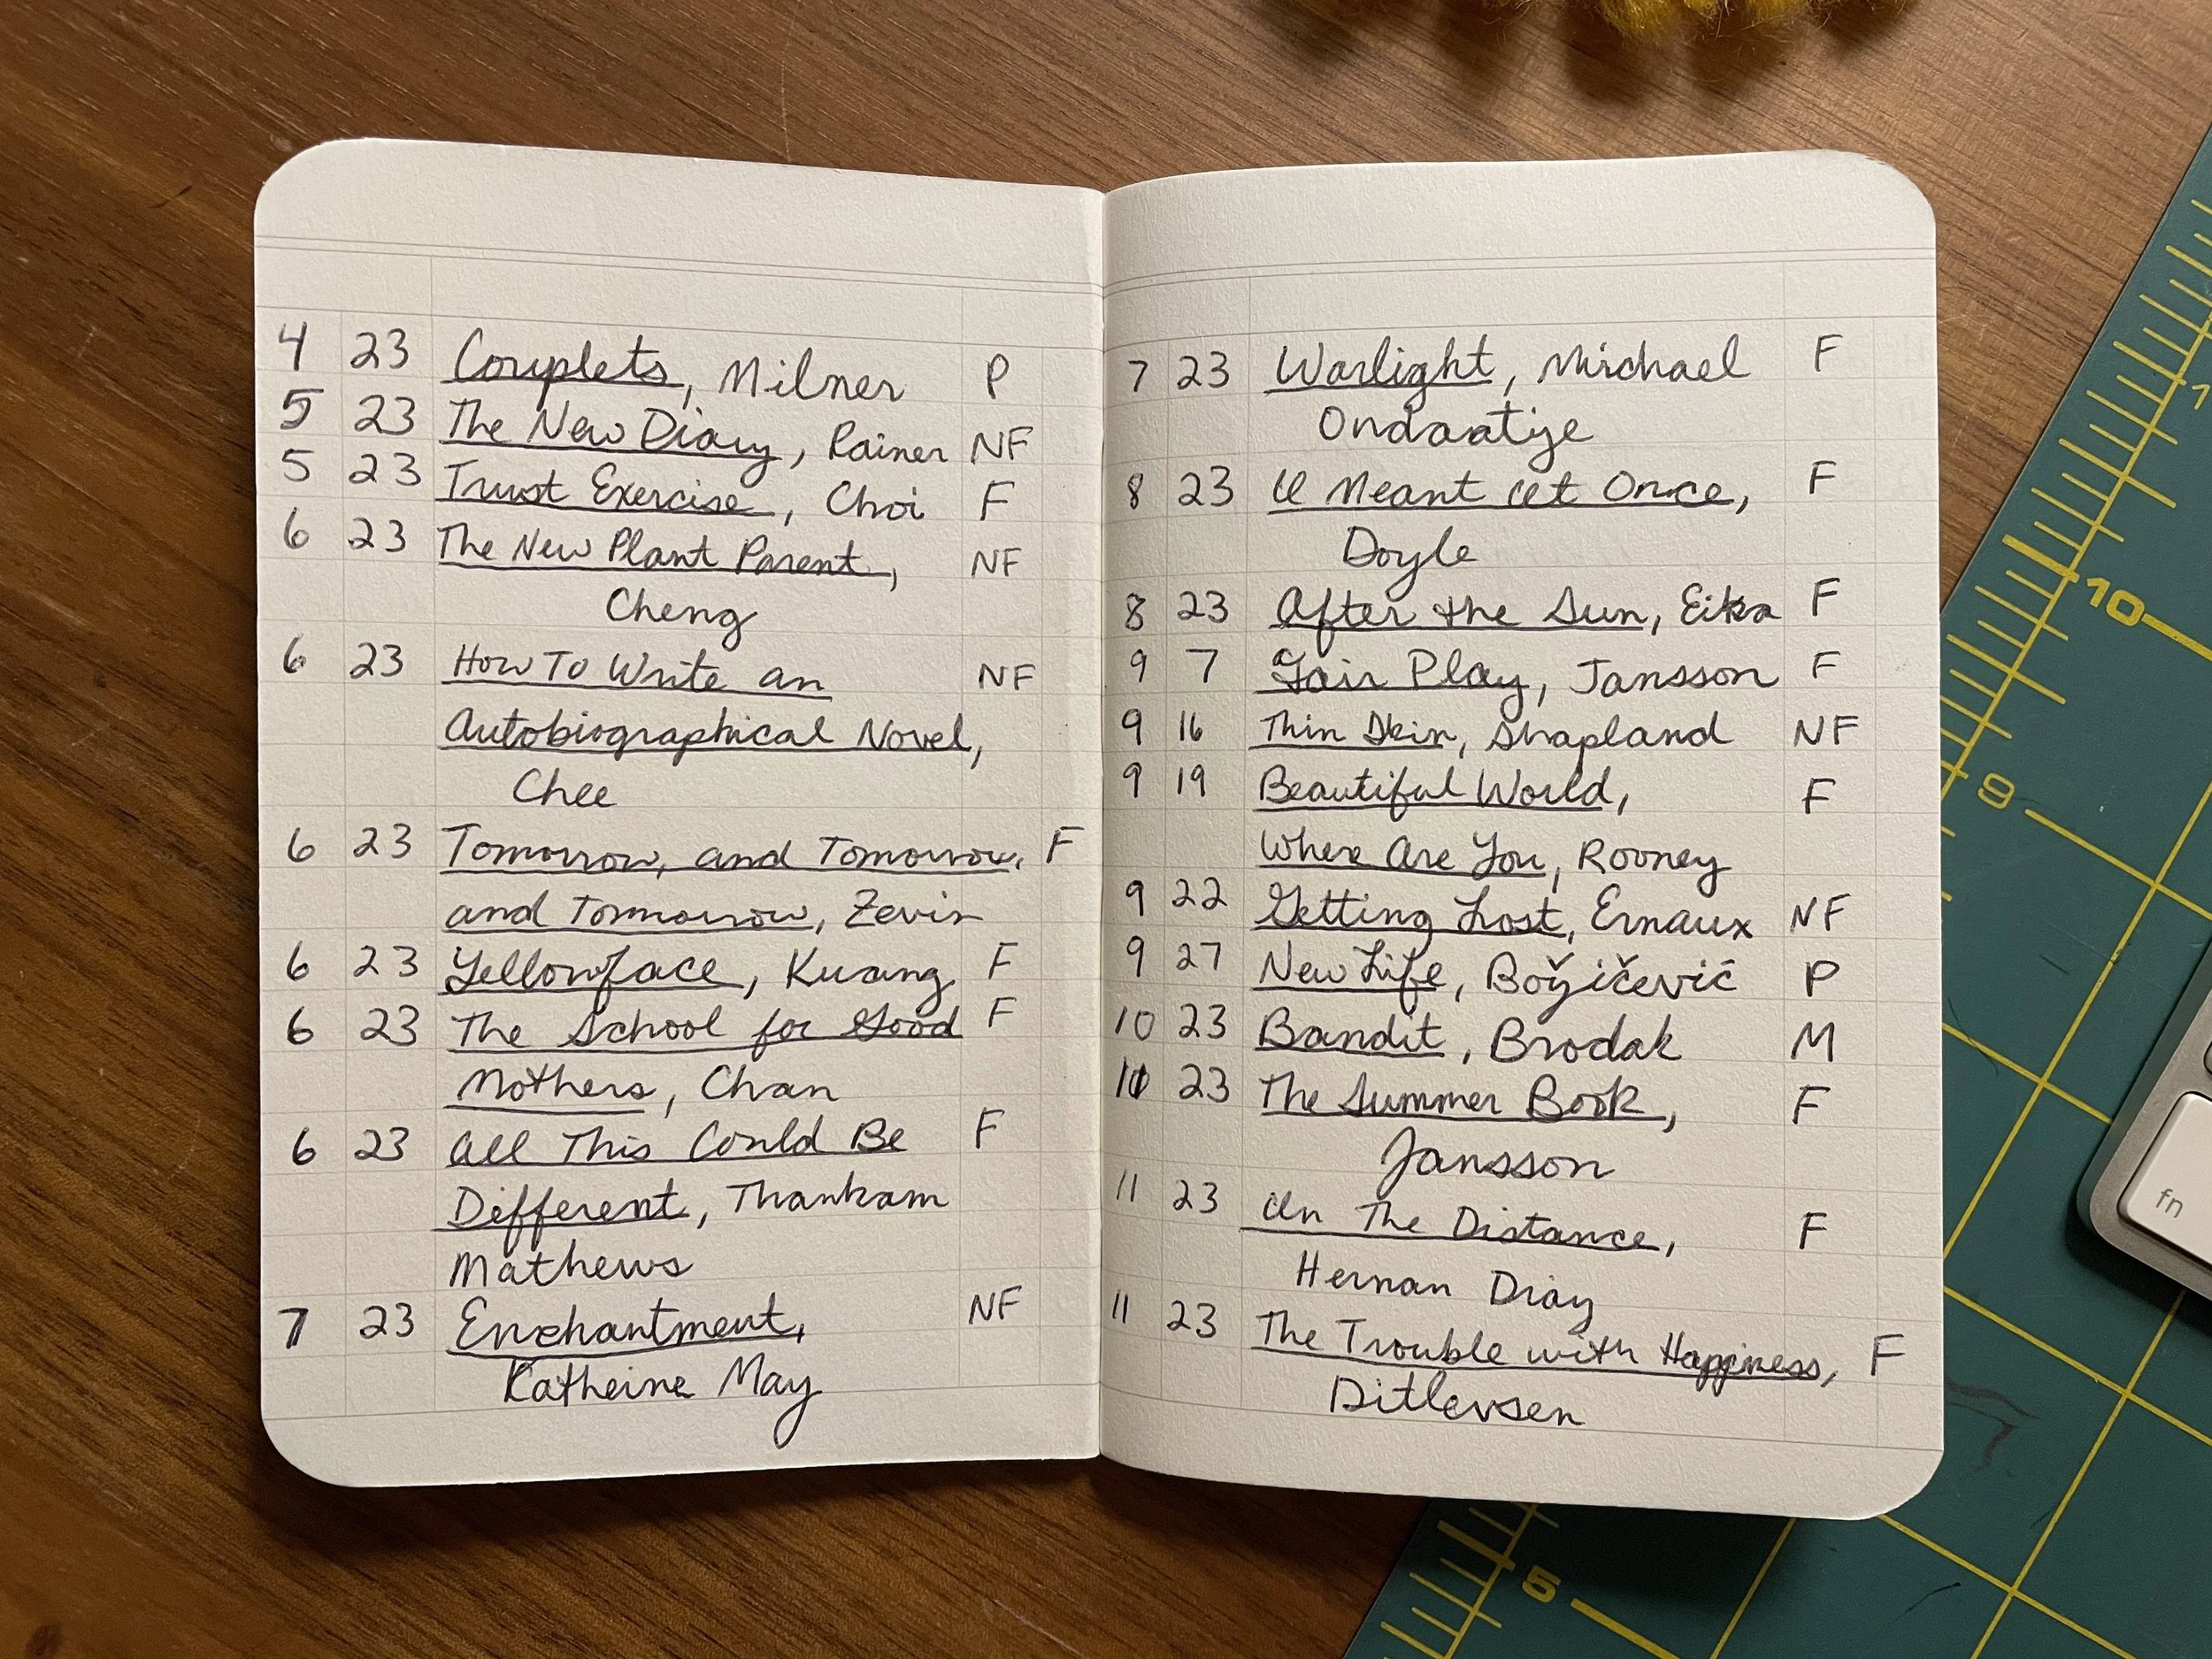 4 23 Couplets, Milner P
5 23 The New Diary, Rainer NF
5 23 Trust Exercise, Choi F
6 23 The New Plant Parent, NF
Cheng
6 23 How To Write an NF
Autobiographical Novel,
Chee
6 23 Tomorrow, and Tomorrow, F
and Tommorrow, Zevin
6 23 Yellowface, Kuang F
6 23 The School for Good F
Mothers, Chan
6 23 All This Could Be F
Different, Thankam
Mathews
7 23 Enchantment, NF
Katheine May
7 23 Warlight, Michael F
Ondaatije
8 23 I Meant it Once, F
Doyle
8 23 After the Sun, Eika F
9 7 Fair Play, Jansson F
9 16 Thin Skin, Shapland NF
9 19 Beautiful World, F
Where Are You, Rooney
9 22 Getting Lost, Ernaux NF
9 27 New Life, Božičević P
10 23 Bandit, Brodak M
10 23 The Summer Book, F
Jansson
11 23 In The Distance, F
Hernan Diaz
11 23 The Trouble with Happiness, F
Ditlevsen
1
10
9
5
fn